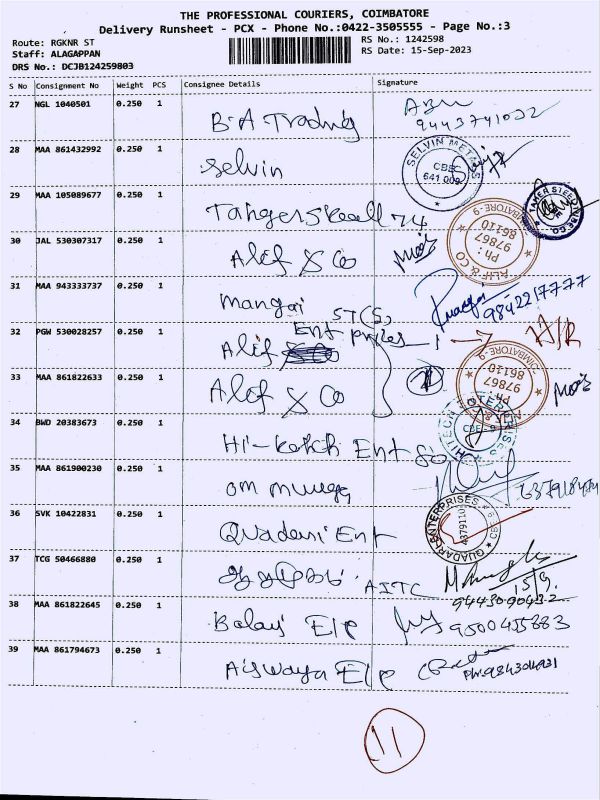 THE PROFESSIONAL COURIERS, COIMBATORE
Delivery Runsheet - PCX - Phone No.:0422-3505555 - Page No.:3
Route: RGKNR ST
RS No.: 1242598
Staff: ALAGAPPAN
RS Date: 15-Sep-2023
DRS No.: DCJB124259803
S No Consignment No Weight PCS Consignee Details Signature
27 NGL 1040501 0.250 1 B.A Trading
9443741022
28 MAA 861432992 0.250 1 Selvin
SELVIN METALS
CBE
641 009
29 MAA 105089677 0.250 1
30 JAL 530307317 0.250 1 Alif & Co
ALIF & CO
Ph :
97867
86110
COIMBATORE-9
31 MAA 943333737 0.250 1 mangai
9842217777
32 PGW 530028257 0.250 1 Alif Enterprises
33 MAA 861822633 0.250 1 Alif & Co
Ph :
97867
86110
COIMBATORE-9
34 BWD 20383673 0.250 1 Hi-
HITECH ENTERPRISES
CBE-9
35 MAA 861900230 0.250 1 om
36 SVK 10422831 0.250 1 Quadari Ent
QUADARI ENTERPRISES
37 TCG 50466880 0.250 1 AITC
9443090432
15/9.
38 MAA 861822645 0.250 1 Balaji E/P
9500455883
39 MAA 861794673 0.250 1 E/P
11